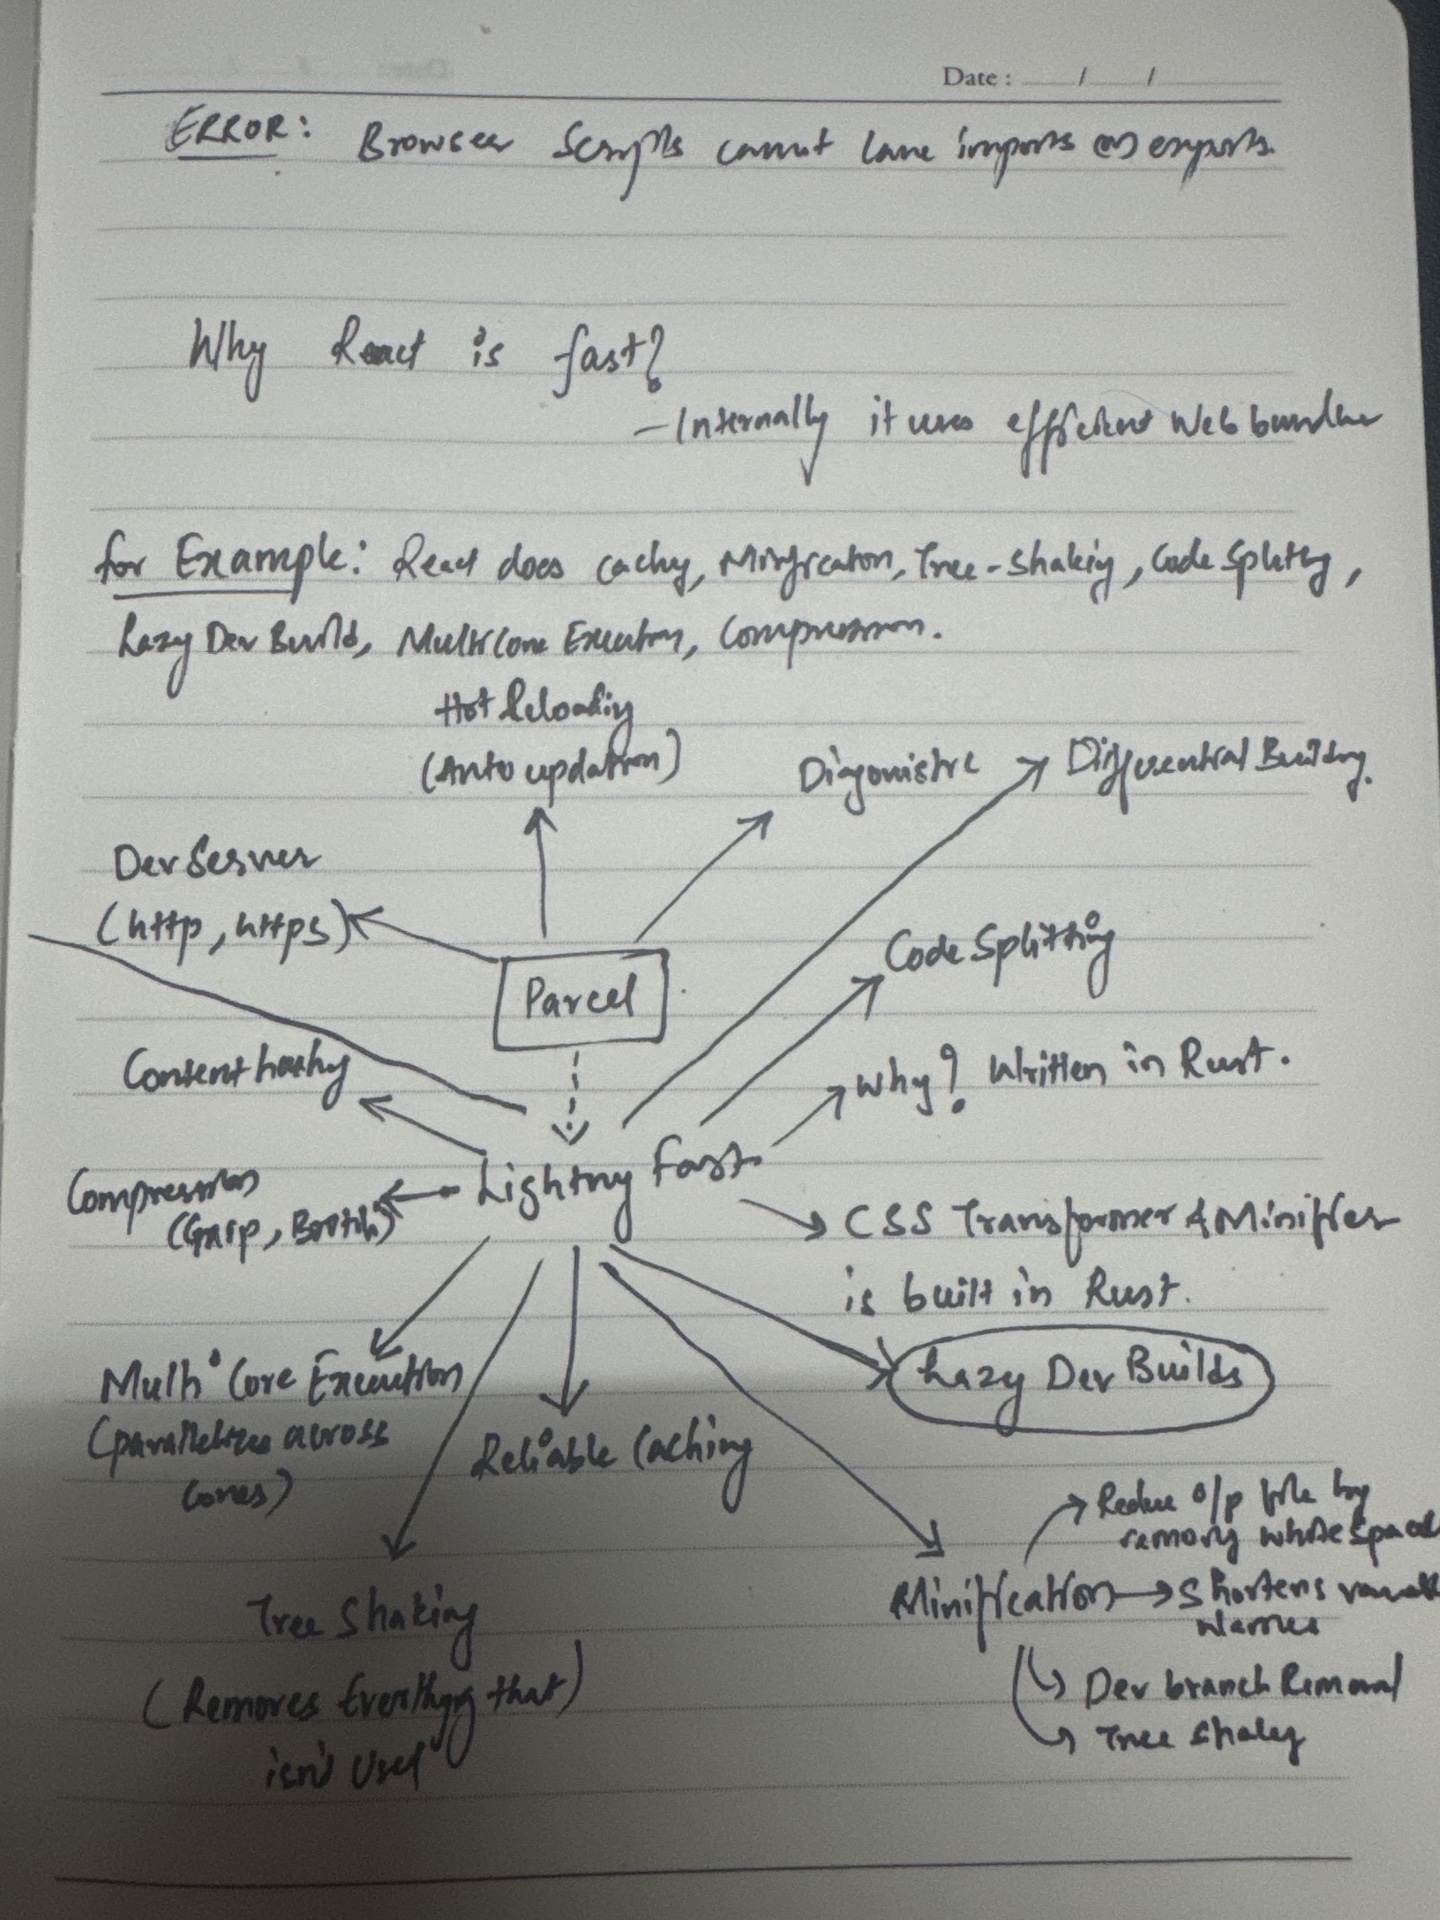 Date : / /
ERROR: Browser Scripts cannot have imports or exports.
Why React is fast?
- Internally it uses efficient Web bundler
for Example: React does cachy, Minification, Tree-Shakig, Code Splittg,
Lazy Dev Build, Multicore Execution, Compression.
Hot Reloadig
(Auto updation)
Diagonistic
Differential Building.
Dev Server
(http, https)
Parcel
Code Splitting
Content hashg
Why? Written in Rust.
Lightng Fast
Compression
(Gzip, Brotli)
CSS Transformer & Minifier
is built in Rust.
Lazy Dev Builds
Multi Core Execution
(parallelizes across
Cores)
Reliable Caching
Tree Shaking
(Removes Everthyg that
isn't Used)
Minification
Reduce o/p file by
removg white space
Shortens variable
names
Dev branch Removal
Tree Shakg